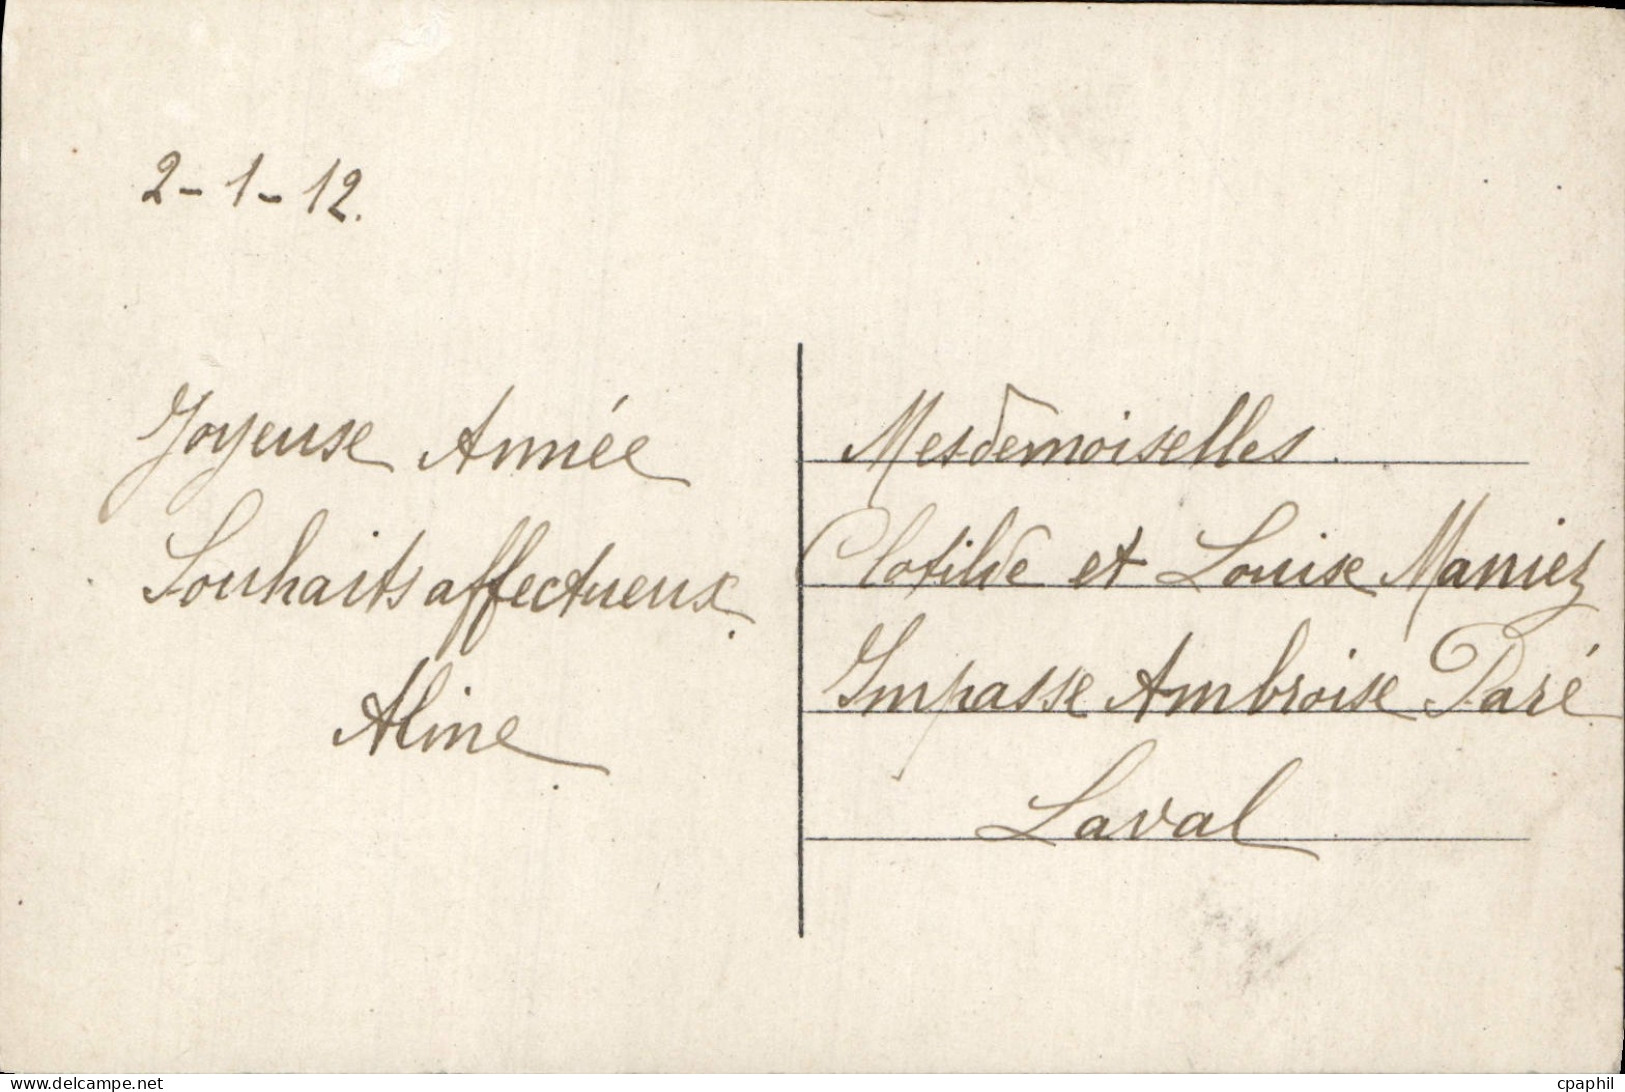 2-1-12.
Joyeuse Année
Souhaits affectueux.
Aline
Mesdemoiselles.
Clotilde et Louise Maniez
Impasse Ambroise Paré
Laval
Delcampe.net
cpaphil